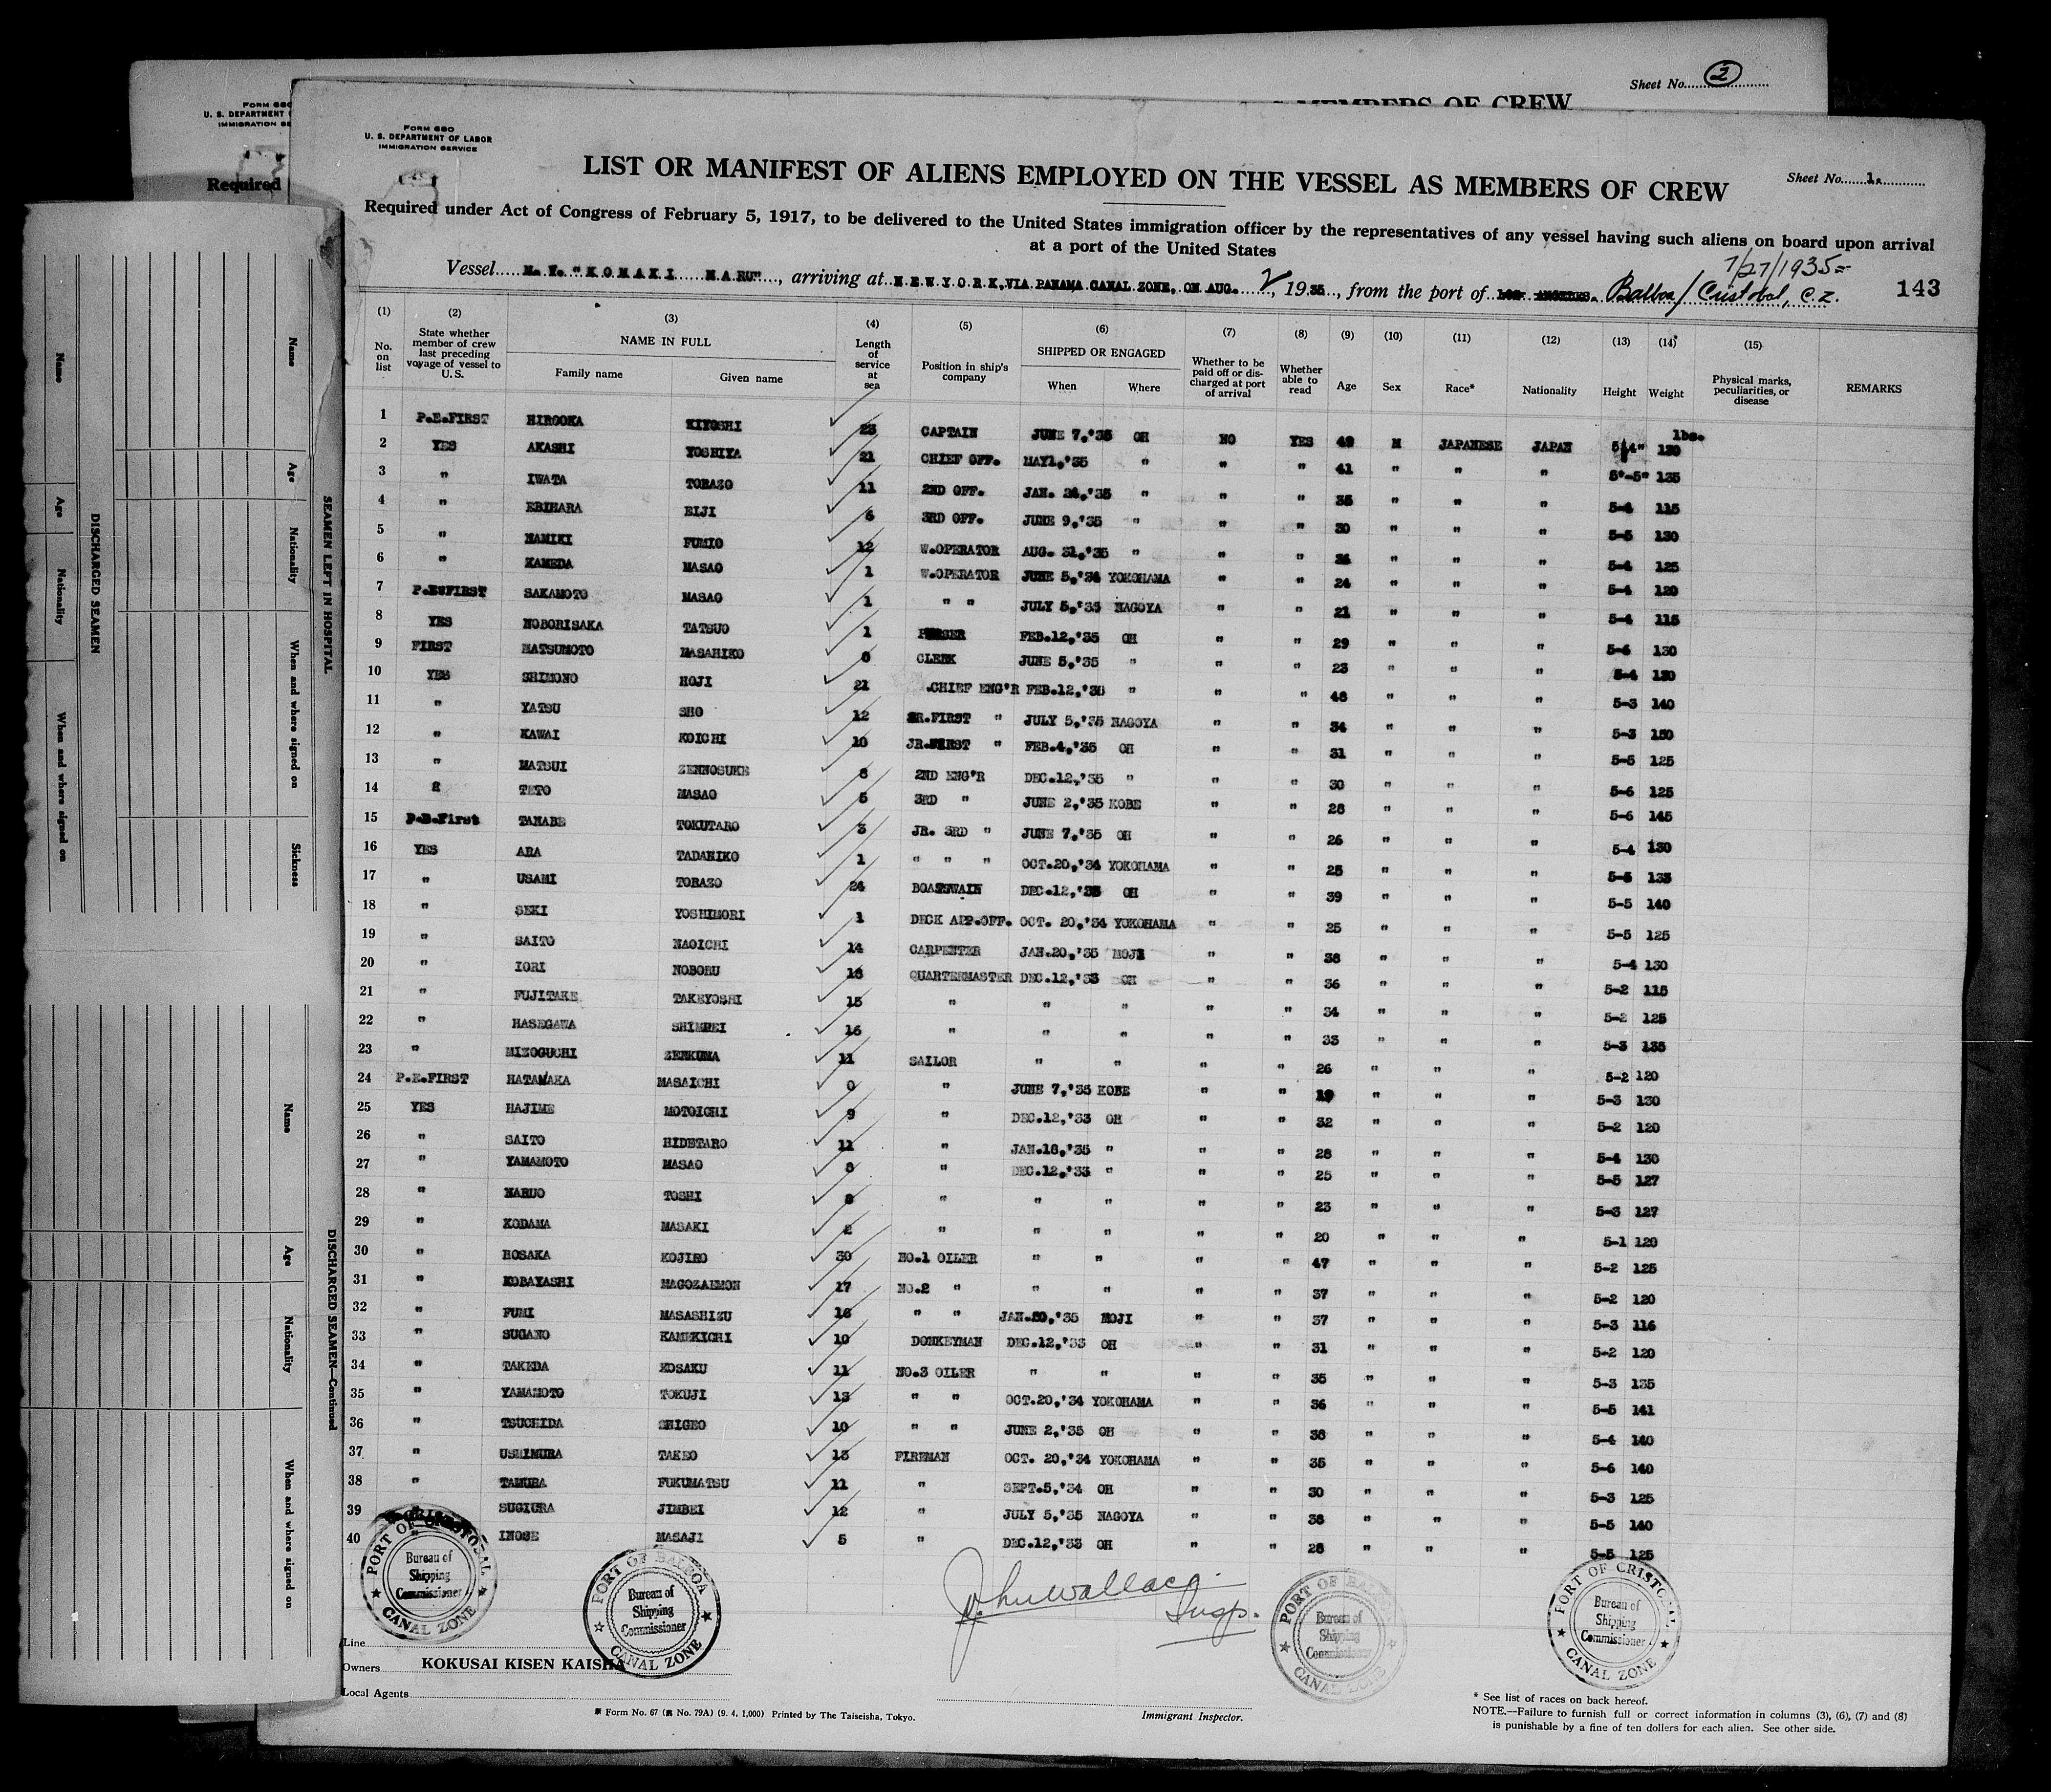 Sheet No. 2
MEMBERS OF CREW
FORM 680
U. S. DEPARTMENT
IMMIGRATION SE
Required
FORM 680
U. S. DEPARTMENT OF LABOR
IMMIGRATION SERVICE
LIST OR MANIFEST OF ALIENS EMPLOYED ON THE VESSEL AS MEMBERS OF CREW
Sheet No. 1.
Required under Act of Congress of February 5, 1917, to be delivered to the United States immigration officer by the representatives of any vessel having such aliens on board upon arrival
at a port of the United States
7/27/1935
Vessel "KOMAKI MARU", arriving at NEW YORK, VIA PANAMA CANAL ZONE, ON AUG. 2, 1935, from the port of LOS ANGELES. Balboa/Cristobal, C.Z. 143
(1) (2) (3) (4) (5) (6) (7) (8) (9) (10) (11) (12) (13) (14) (15)
No. on list State whether member of crew last preceding voyage of vessel to U.S. NAME IN FULL Family name Given name Length of service at sea Position in ship's company SHIPPED OR ENGAGED When Where Whether to be paid off or discharged at port of arrival Whether able to read Age Sex Race* Nationality Height Weight Physical marks, peculiarities, or disease REMARKS
1 P.E.FIRST HIROOKA KIYOSHI 23 CAPTAIN JUNE 7,'35 OH NO YES 49 M JAPANESE JAPAN 5'4" lbs. 130
2 YES AKASHI YOSHIYA 21 CHIEF OFF. MAY1,'35 " " " 41 " " " 5'-5" 135
3 " IWATA TORAZO 11 2ND OFF. JAN. 24,'35 " " " 35 " " " 5-4 115
4 " EBIHARA EIJI 6 3RD OFF. JUNE 9,'35 " " " 30 " " " 5-5 130
5 " NAMIKI FUMIO 12 W.OPERATOR AUG. 31,'35 " " " " " " 5-4 125
6 " KAMEDA MASAO 1 W.OPERATOR JUNE 5,'34 YOKOHAMA " " 24 " " " 5-4 120
7 P.E.FIRST SAKAMOTO MASAO 1 " " JULY 5,'35 NAGOYA " " 21 " " " 5-4 115
8 YES NOBORISAKA TATSUO 1 PURSER FEB.12,'35 OH " " 29 " " " 5-6 130
9 FIRST MATSUMOTO MASAHIKO 0 CLERK JUNE 5,'35 " " " 23 " " " 5-4 130
10 YES SHIMONO HOJI 21 .CHIEF ENG'R FEB.12,'35 " " " 48 " " " 5-3 140
11 " YATSU SHO 12 SR.FIRST " JULY 5,'35 NAGOYA " " 34 " " " 5-3 150
12 " KAWAI KOICHI 10 JR.FIRST " FEB.4,'35 OH " " 31 " " " 5-5 125
13 " MATSUI ZENNOSUKE 8 2ND ENG'R DEC.12,'35 " " " 30 " " " 5-6 125
14 " TETO MASAO 5 3RD " JUNE 2,'35 KOBE " " 28 " " " 5-6 145
15 P.E.First TANABE TOKUTARO 3 JR. 3RD " JUNE 7,'35 OH " " 26 " " " 5-4 130
16 YES ARA TADAHIKO 1 " " " OCT.20,'34 YOKOHAMA " " 25 " " " 5-5 135
17 " USAMI TORAZO 24 BOATSWAIN DEC.12,'33 OH " " 39 " " " 5-5 140
18 " SEKI YOSHIMORI 1 DECK APP.OFF. OCT. 20,'34 YOKOHAMA " " 25 " " " 5-5 125
19 " SAITO NAOICHI 14 CARPENTER JAN.20,'35 MOJI " " 38 " " " 5-4 130
20 " IORI NOBORU 18 QUARTERMASTER DEC.12,'33 OH " " 36 " " " 5-2 115
21 " FUJITAKE TAKEYOSHI 15 " " " " " 34 " " " 5-2 125
22 " HASEGAWA SHIMPEI 16 " " " " " 33 " " " 5-3 135
23 " MIZOGUCHI ZENKUMA 11 SAILOR " " " " 26 " " " 5-2 120
24 P.E.FIRST HATANAKA MASAICHI 0 " JUNE 7,'35 KOBE " " 19 " " " 5-3 130
25 YES HAJIME MOTOICHI 9 " DEC.12,'33 OH " " 32 " " " 5-2 120
26 " SAITO HIDETARO 11 " JAN.18,'35 " " " 28 " " " 5-4 130
27 " YAMAMOTO MASAO 8 " DEC.12,'33 " " " 25 " " " 5-5 127
28 " NARUO TOSHI 8 " " " " " 23 " " " 5-3 127
29 " KODAMA MASAKI 2 " " " " " 20 " " " 5-1 120
30 " HOSAKA KOJIRO 30 NO.1 OILER " " " " 47 " " " 5-2 125
31 " KOBAYASHI MAGOZAEMON 17 NO.2 " " " " " 37 " " " 5-2 120
32 " FUMI MASASHIZU 16 " " JAN.20,'35 MOJI " " 37 " " " 5-3 116
33 " SUGANO KAMEKICHI 10 DONKEYMAN DEC.12,'33 OH " " 31 " " " 5-2 120
34 " TAKEDA KOSAKU 11 NO.3 OILER " " " " 35 " " " 5-3 135
35 " YAMAMOTO TOKUJI 13 " " OCT.20,'34 YOKOHAMA " " 36 " " " 5-5 141
36 " TSUCHIDA SHIGEO 10 " " JUNE 2,'35 OH " " 38 " " " 5-4 140
37 " USHIMURA TAKEO 13 FIREMAN OCT. 20,'34 YOKOHAMA " " 35 " " " 5-6 140
38 " TAMURA FUKUMATSU 11 " SEPT.5,'34 OH " " 30 " " " 5-3 125
39 " SUGIURA JIMBEI 12 " JULY 5,'35 NAGOYA " " 38 " " " 5-5 140
40 " INOSE MASAJI 5 " DEC.12,'33 OH " " 28 " " " 5-5 125
PORT OF CRISTOBAL Bureau of Shipping Commissioner CANAL ZONE
PORT OF BALBOA Bureau of Shipping Commissioner CANAL ZONE
Wallace Insp.
PORT OF BALBOA Bureau of Shipping Commissioner CANAL ZONE
PORT OF CRISTOBAL Bureau of Shipping Commissioner CANAL ZONE
Line
Owners KOKUSAI KISEN KAISHA
Local Agents
Immigrant Inspector.
Form No. 67 (No. 79A) (9. 4. 1,000) Printed by The Taiseisha, Tokyo.
* See list of races on back hereof.
NOTE.—Failure to furnish full or correct information in columns (3), (6), (7) and (8)
is punishable by a fine of ten dollars for each alien. See other side.
SEAMEN LEFT IN HOSPITAL
Name Age Nationality When and where signed on Sickness
DISCHARGED SEAMEN
Name Age Nationality When and where signed on
DISCHARGED SEAMEN—Continued
Name Age Nationality When and where signed on